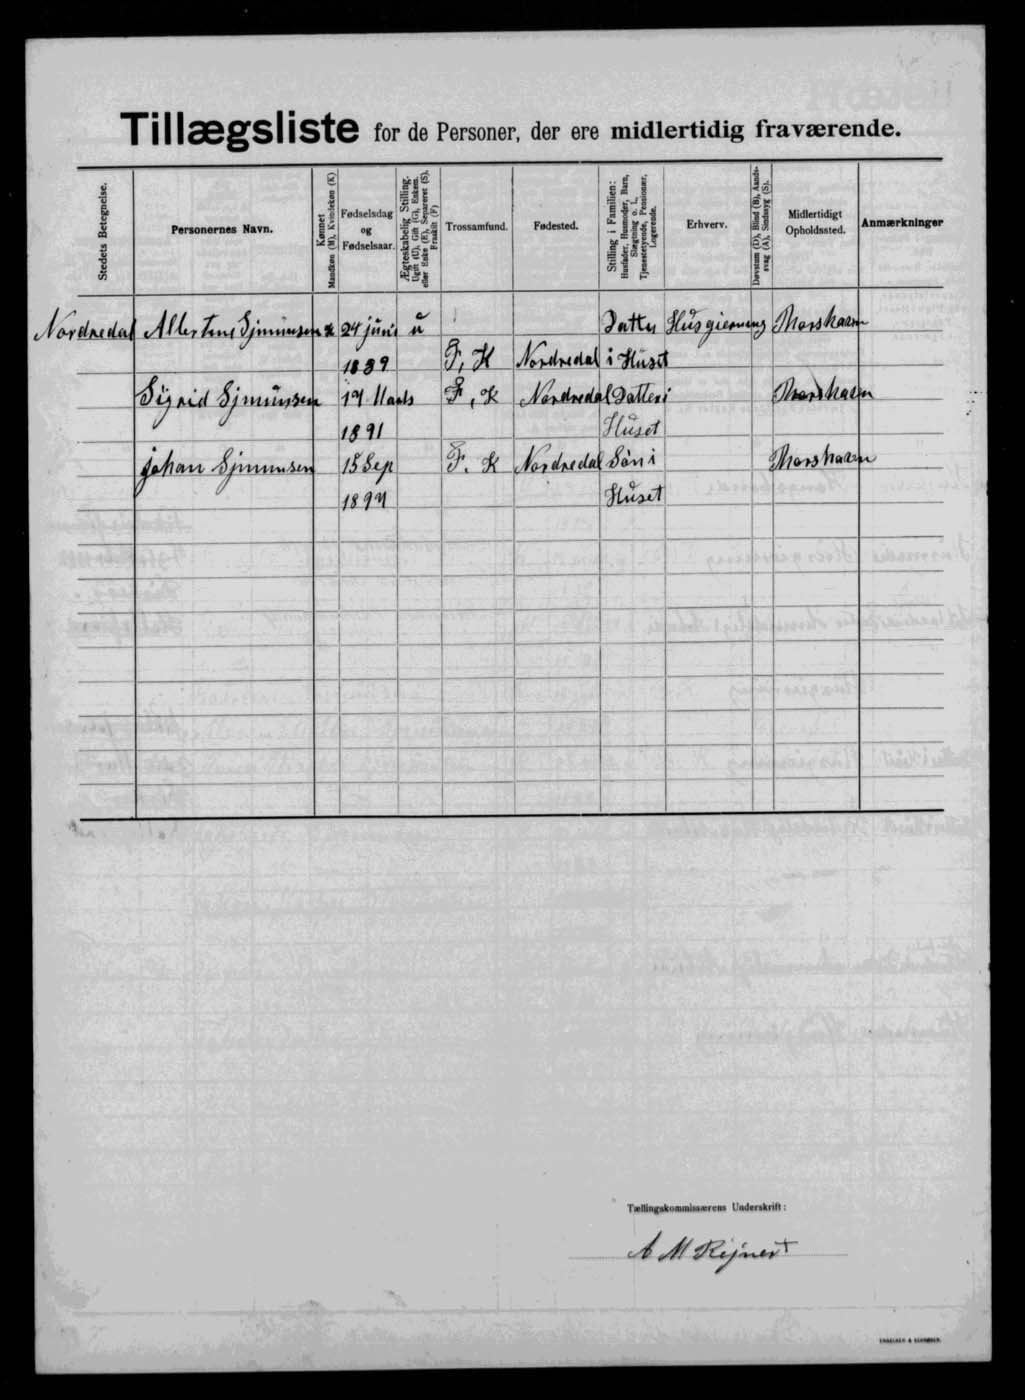 Tillægsliste for de Personer, der ere midlertidig fraværende.
Stedets Betegnelse.
Personernes Navn.
Kønnet
Mandkøn (M), Kvindekøn (K)
Fødselsdag
og
Fødselsaar.
Ægteskabelig Stilling.
Ugift (U), Gift (G), Enkem.
eller Enke (E), Separeret (S),
Fraskilt (F)
Trossamfund.
Fødested.
Stilling i Familien:
Husfader, Husmoder, Barn,
Slægtning o. l.,
Tjenestetyende, Pensionær,
Logerende.
Erhverv.
Døvstum (D), Blind (B), Aands-
svag (A), Sindssyg (S).
Midlertidigt
Opholdssted.
Anmærkninger
Nordredal Albertine Sjmunsen K 24 juni u Datter Husgierning Thorshavn
1889 F, K Nordredal i Huset
Sigrid Sjmunsen 17 Marts F, K Nordredal Datter i Thorshavn
1891 Huset
johan Sjmunsen 15 Sep F. K Nordredal Søn i Thorshavn
1897 Huset
Tællingskommissærens Underskrift:
A M Rejnert